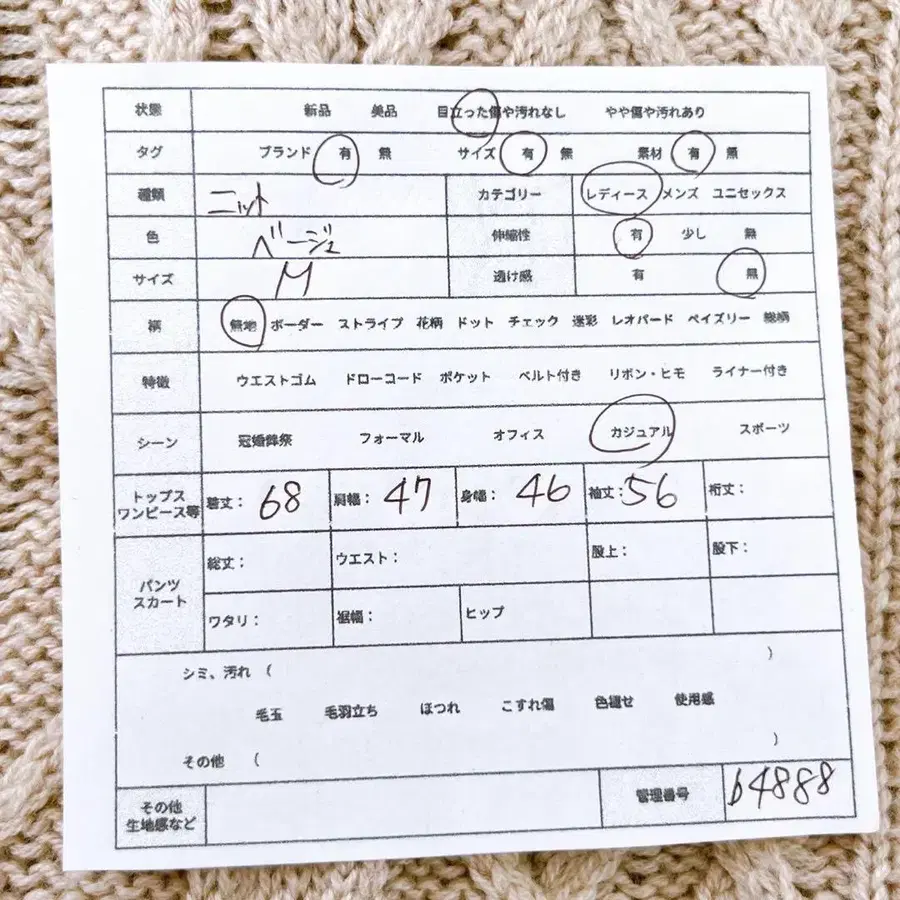 状態 新品 美品 目立った傷や汚れなし やや傷や汚れあり
タグ ブランド 有 無 サイズ 有 無 素材 有 無
種類 ニット カテゴリー レディース メンズ ユニセックス
色 ベージュ 伸縮性 有 少し 無
サイズ M 透け感 有 無
柄 無地 ボーダー ストライプ 花柄 ドット チェック 迷彩 レオパード ペイズリー 総柄
特徴 ウエストゴム ドローコード ポケット ベルト付き リボン・ヒモ ライナー付き
シーン 冠婚葬祭 フォーマル オフィス カジュアル スポーツ
トップス
ワンピース等 着丈: 68 肩幅: 47 身幅: 46 袖丈: 56 裄丈:
パンツ
スカート 総丈: ウエスト: 股上: 股下:
ワタリ: 裾幅: ヒップ
シミ、汚れ ( )
毛玉 毛羽立ち ほつれ こすれ傷 色褪せ 使用感
その他 ( )
その他
生地感など 管理番号 b4888